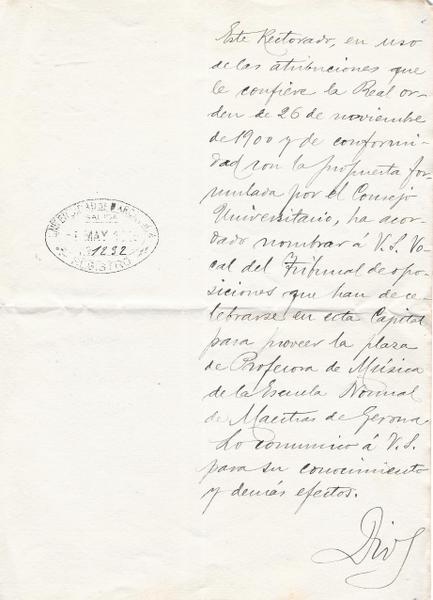 Este Rectorado, en uso
de las atribuciones que
le confiere la Real or-
den de 26 de noviembre
de 1900 y de conformi-
dad con la propuesta for-
mulada por el Consejo
Universitario, ha acor-
dado nombrar á V.S. Vo-
cal del Tribunal de opo-
siciones que han de ce-
lebrarse en esta Capital
para proveer la plaza
de Profesora de Música
de la Escuela Normal
de Maestras de Gerona.
Lo comunico á V.S.
para su conocimiento
y demás efectos.
SALIDA
MAY
1232
REGISTRO